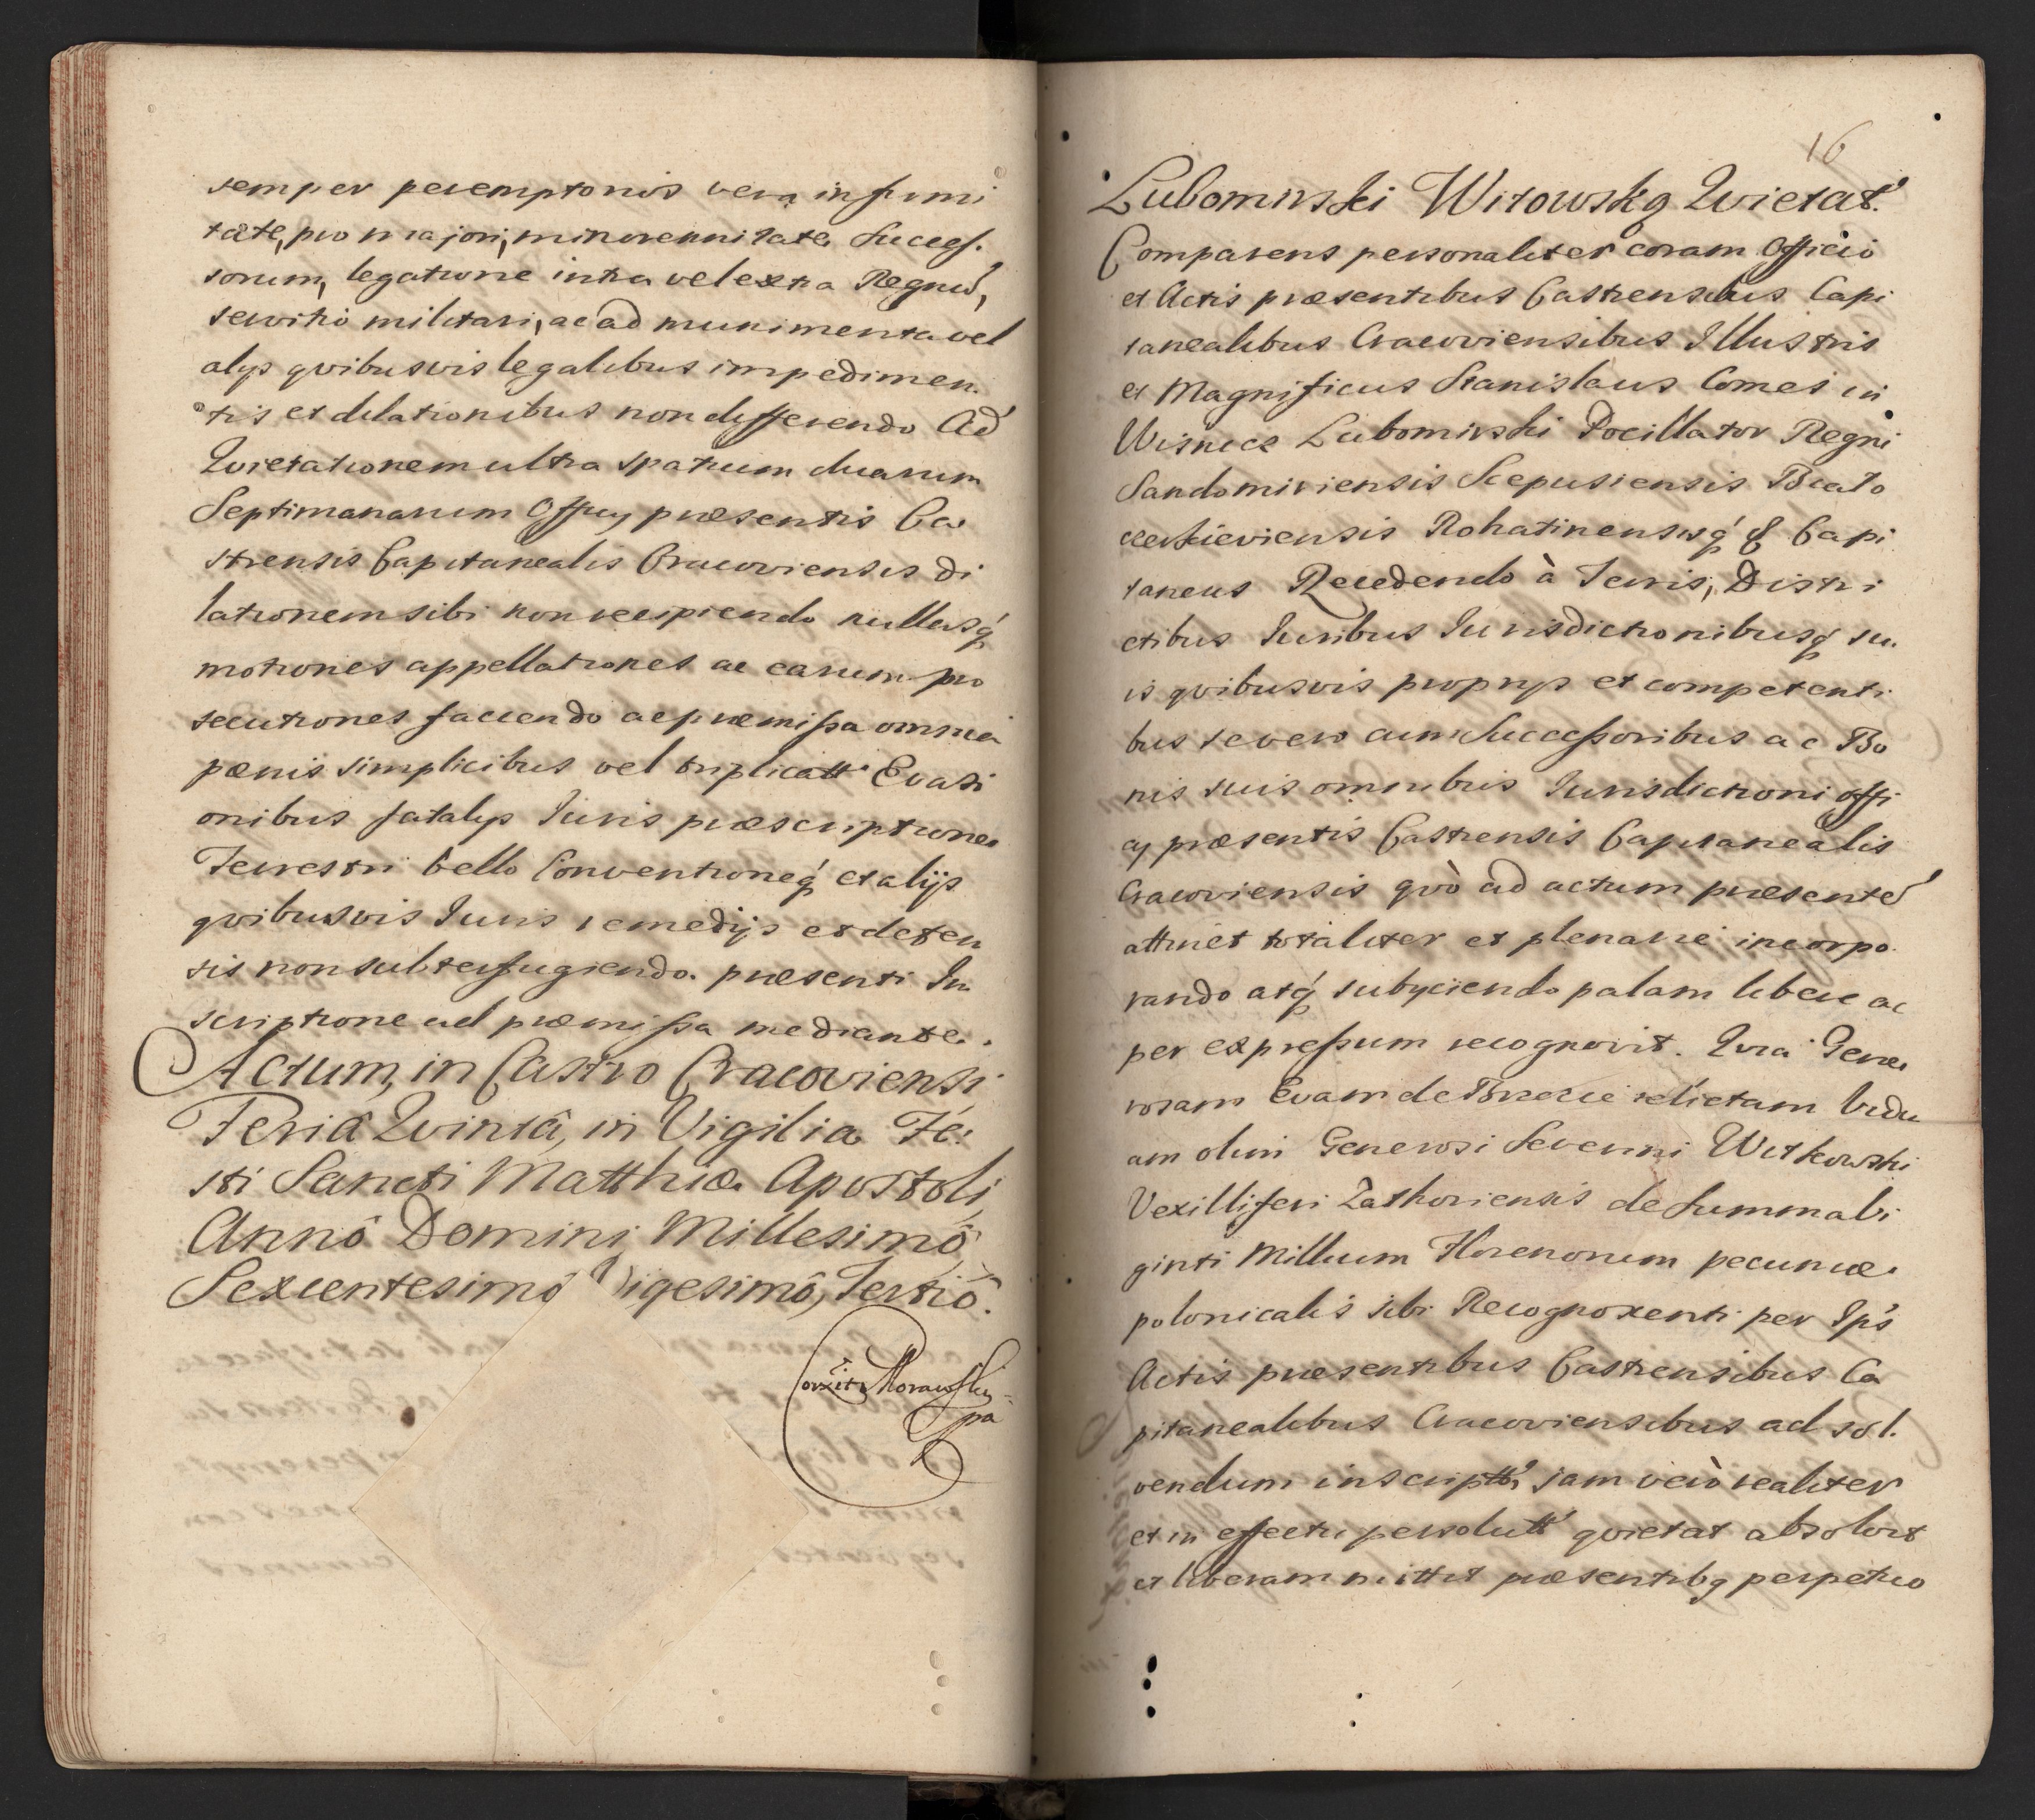 semper peremptoriis vera infirmi
tate, pro majori, minorennitate Succes.
sorum, legatione intra vel extra Regnũ,
servitio militari, ac ad munimenta vel
alys qvibusvis legalibus impedimen.
tis et dilationibus non differendo Ad
Qvietationem ultra spatium duarum
Septimanarum Officy præsentis Ca
strensis Capitanealis Cracoviensis di
lationem sibi non recipiendo nullasq́
motiones appellationes ac earum pro
secutiones faciendo ac præmissa omnia
pœnis simplicibus vel triplicatt Evasi
onibus fatalys Iuris præscriptione
Terrestri bello Conventioneq́ et alijs
qvibusvis Iuris remedijs et deten
tis non subterfugiendo. præsenti In
scriptione ad præmissa mediante.
Actum, in Castro Cracoviensi
Feriâ Qvintâ, in Vigilia Fe:
sti Sancti Matthiæ Apostoli
Annô Domini Millesimô
Sexcentesimô Vigesimô, Tertiô.
16
Lubomirski Witowską Qvietat.
Comparens personaliter coram Officio
et Actis præsentibus Castrensibus Capi
tanealibus Cracoviensibus Illustris
et Magnificus Stanislaus Comes in
Wisnice Lubomirski Pocillator Regni
Sandomiriensis Scepusiensis Biało
cerkieviensis Rohatinensisq́ & Capi
taneus Recedendo à Terris, Distri
ctibus Iuribus Iurisdictionibusq́ su.
is qvibusvis proprys et competenti
bus se vero cum Successoribus ac Bo
nis suis omnibus Iurisdictioni offi
cy præsentis Castrensis Capitanealis
Cracoviensis qvò ad actum præsentẽ
attinet totaliter et plenarie incorpo.
rando atq́ subyciendo palam libere ac
per expressum recognovit. Qvia Gene
rosam Evam de relictam Vidu
am olim Generosi Severini Witkowski
Vexilliferi Zathoriensis de Summa Vi
ginti Millium Florenorum pecuniæ
polonicalis sibi Recognoscenti per Ips
Actis præsentibus Castrensibus Ca
pitanealibus Cracoviensibus ad sol.
vendum inscriptt, jam verò realiter
et in effectu persolutt qvietat absolvit
et liberam mittit præsentibq perpetuo